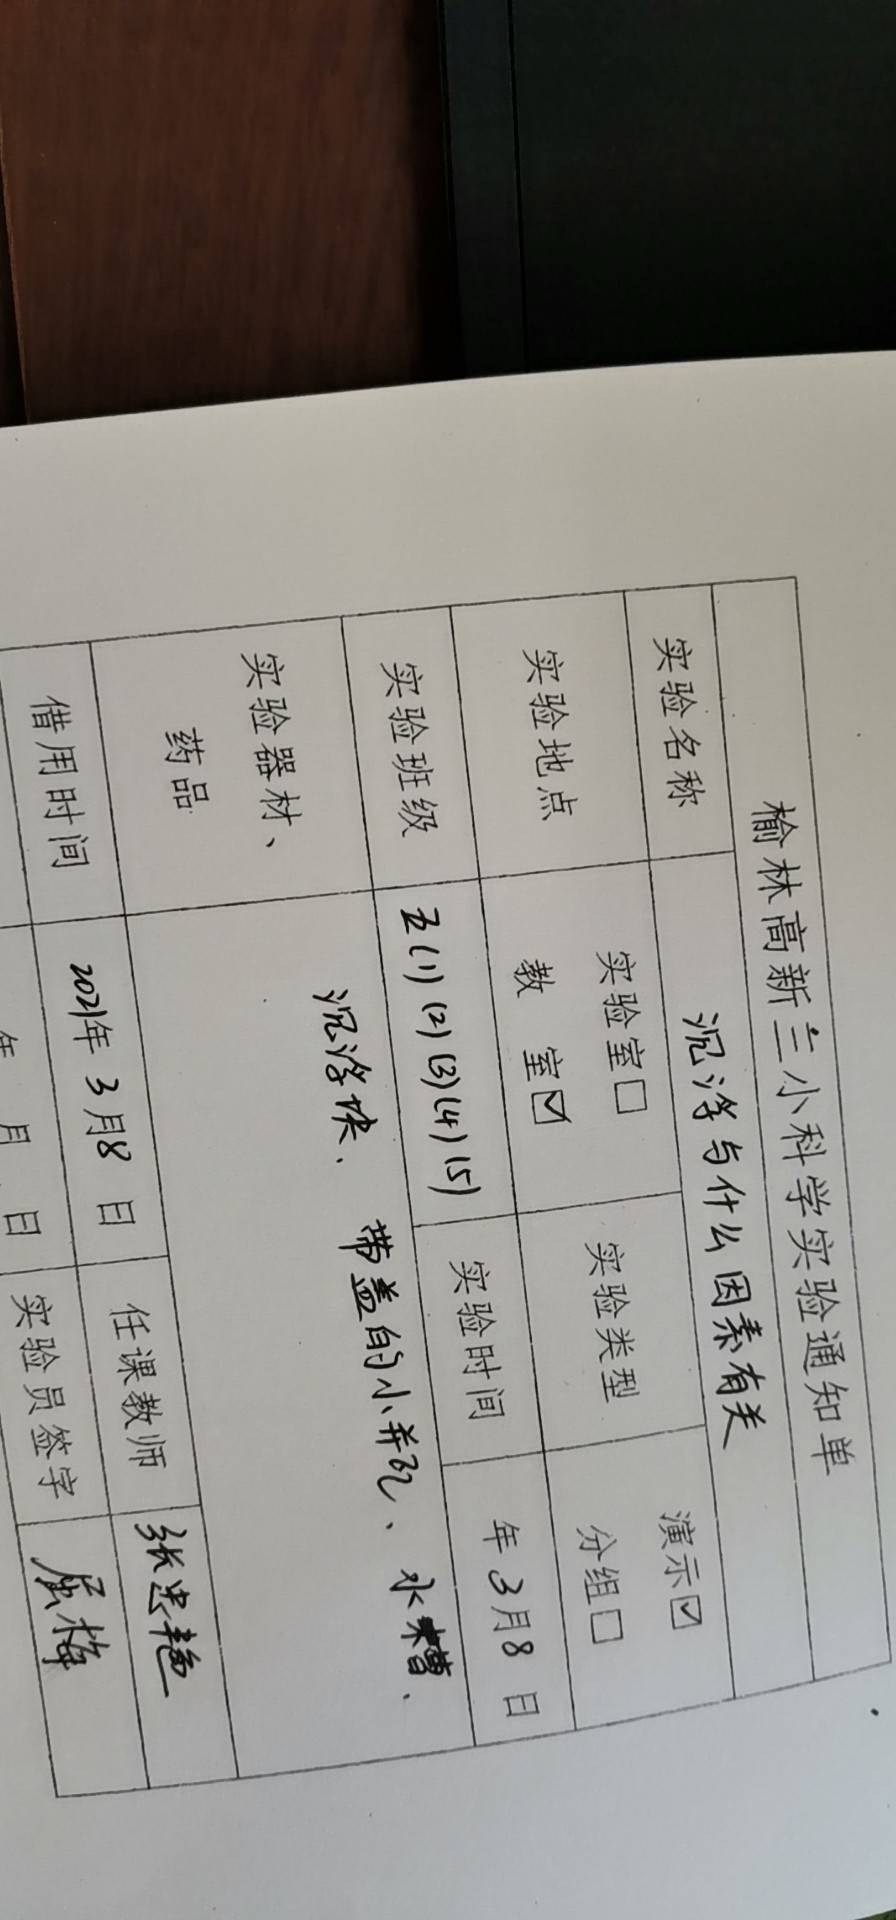 榆林高新三小科学实验通知单
实验名称 沉浮与什么因素有关
实验地点 实验室□ 教 室☑ 实验类型 演示☑ 分组□
实验班级 五(1)(2)(3)(4)(5) 实验时间 年3月8日
实验器材、药品 沉浮块、带盖的小并瓦、水槽、
借用时间 2021年3月8日 任课教师
年 月 日 实验员签字 屈梅